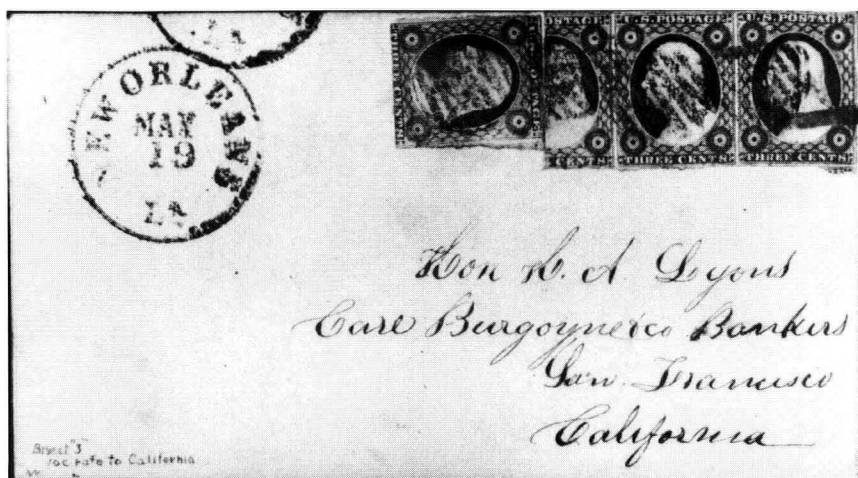 LA
NEW ORLEANS
MAY
19
LA
POSTAGE
U.S. POSTAGE
U.S. POSTAGE
CENTS
THREE CENTS
THREE CENTS
Hon H. A. Lyons
Care Burgoyne & Co Bankers
San Francisco
California
Bisect "3"
10c rate to California